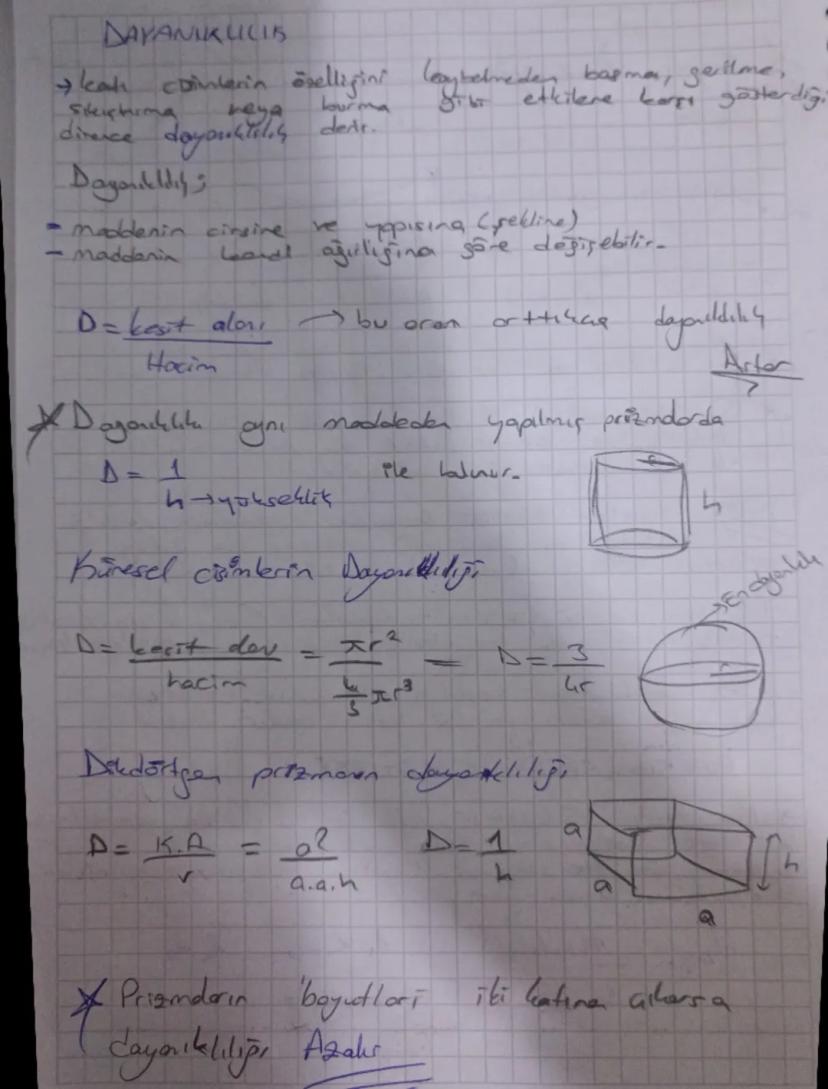 DAYANIKLILIK
→ katı cisimlerin özelliğini kaybetmeden basma, gerilme,
sıkıştırma veya burma gibi etkilere karşı gösterdiği
dirence dayanıklılık denir.
Dayanıklılık;
- maddenin cinsine ve yapısına (şekline)
- maddenin kendi ağırlığına göre değişebilir.
D = kesit alanı / Hacim → bu oran arttıkça dayanıklılık
Artar
* Dayanıklılık aynı maddeden yapılmış prizmalarda
D = 1 / h → yükseklik ile bulunur.
h
Küresel cisimlerin Dayanıklılığı
→ En dayanıklı
D = kesit alanı / hacim = πr² / 4/3 πr³ = D = 3 / 4r
Dikdörtgen prizmanın dayanıklılığı
D = K.A / v = a² / a.a.h D = 1 / h
a
h
a
a
* Prizmaların boyutları iki katına çıkarsa
dayanıklılığı Azalır